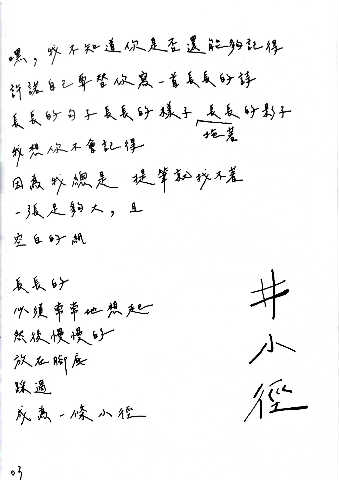 嘿，我不知道你是否還能夠記得
許諾自己要替你寫一首長長的詩
長長的句子長長的樣子拖著長長的影子
我想你不會記得
因為我總是提筆就找不著
一張足夠大，且
空白的紙
長長的
必須常常地想起
然後慢慢的
放在腳底
踩過
成為一條小徑
井小徑
03